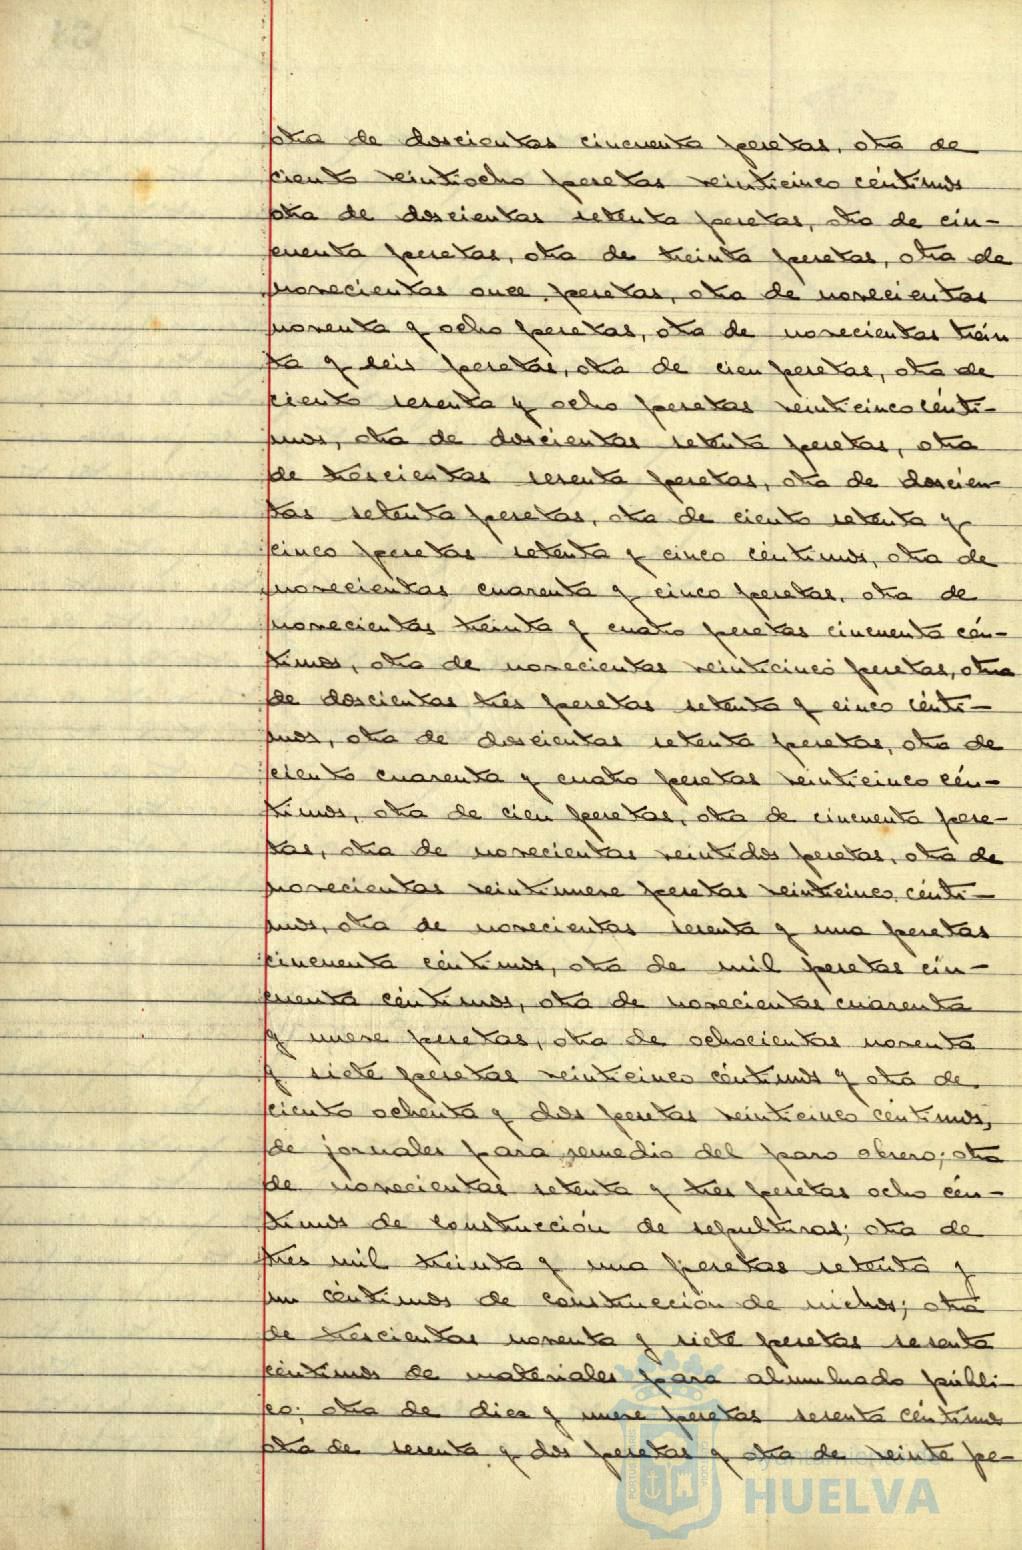 otra de doscientas cincuenta pesetas, otra de
ciento veintiocho pesetas veinticinco céntimos
otra de doscientas setenta pesetas, otra de cin-
cuenta pesetas, otra de treinta pesetas, otra de
novecientas once pesetas, otra de novecientas
noventa y ocho pesetas, otra de novecientas trein
ta y seis pesetas, otra de cien pesetas, otra de
ciento sesenta y ocho pesetas veinticinco cénti-
mos, otra de doscientas setenta pesetas, otra
de trescientas sesenta pesetas, otra de doscien-
tas setenta pesetas, otra de ciento setenta y
cinco pesetas setenta y cinco céntimos, otra de
novecientas cuarenta y cinco pesetas, otra de
novecientas treinta y cuatro pesetas cincuenta cén-
timos, otra de novecientas veinticinco pesetas, otra
de doscientas tres pesetas setenta y cinco cénti-
mos, otra de doscientas setenta pesetas, otra de
ciento cuarenta y cuatro pesetas veinticinco cén-
timos, otra de cien pesetas, otra de cincuenta pese-
tas, otra de novecientas veintidos pesetas, otra de
novecientas veintinueve pesetas veinticinco cénti-
mos, otra de novecientas sesenta y una pesetas
cincuenta céntimos, otra de mil pesetas cin-
cuenta céntimos, otra de novecientas cuarenta
y nueve pesetas, otra de ochocientas noventa
y siete pesetas veinticinco céntimos y otra de
ciento ochenta y dos pesetas veinticinco céntimos,
de jornales para remedio del paro obrero; otra
de novecientas setenta y tres pesetas ocho cén-
timos de construcción de sepulturas; otra de
tres mil treinta y una pesetas setenta y
un céntimos de construcción de nichos; otra
de trescientas noventa y siete pesetas sesenta
céntimos de materiales para alumbrado públi-
co; otra de diez y nueve pesetas sesenta céntimos
otra de sesenta y dos pesetas y otra de veinte pe-
HUELVA